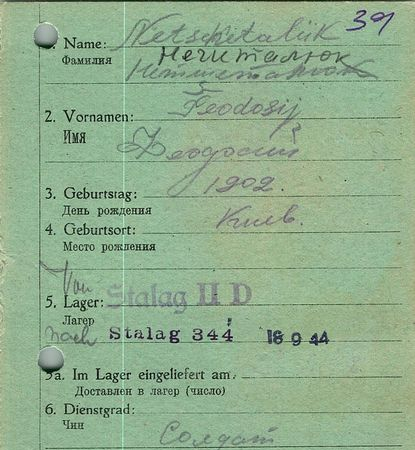 39
1. Name: Netschitaliik
Фамилия Нечиталюк
2. Vornamen: Feodosij
Имя Феодосий
3. Geburtstag: 1902.
День рождения
4. Geburtsort: Киев.
Место рождения
Von
5. Lager: Stalag II D
Лагер
nach Stalag 344 18 9 44
5a. Im Lager eingeliefert am
Доставлен в лагер (число)
6. Dienstgrad:
Чин Солдат